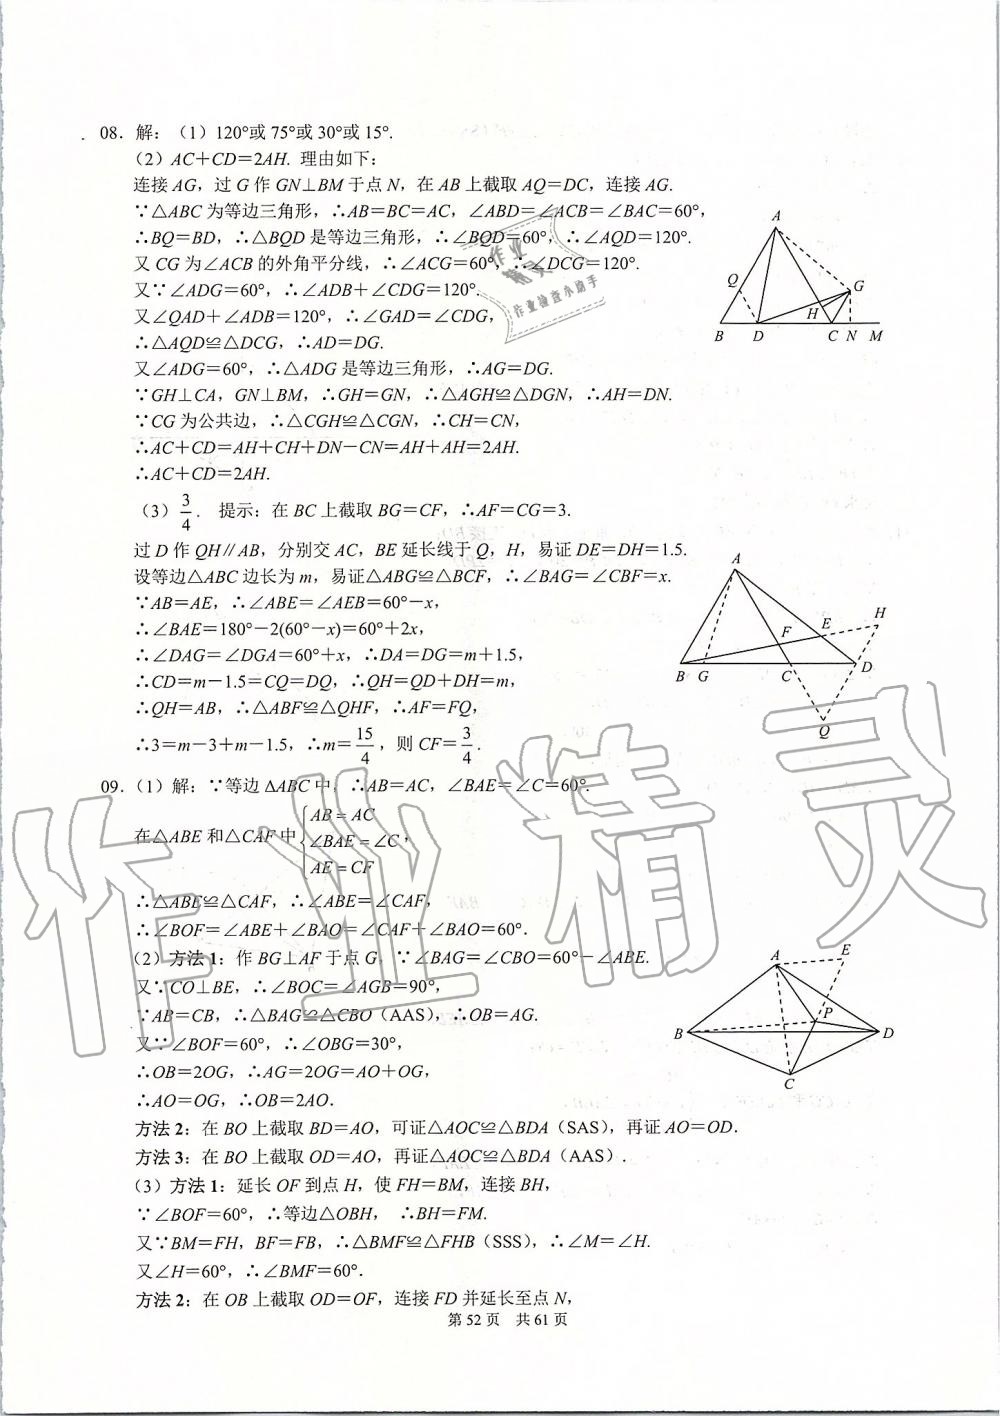 08．解：（1）120°或 75°或 30°或 15°.
（2）AC＋CD＝2AH. 理由如下：
连接 AG，过 G 作 GN⊥BM 于点 N，在 AB 上截取 AQ＝DC，连接 AG.
∵△ABC 为等边三角形，∴AB＝BC＝AC，∠ABD＝∠ACB＝∠BAC＝60°，
∴BQ＝BD，∴△BQD 是等边三角形，∴∠BQD＝60°，∴∠AQD＝120°.
又 CG 为∠ACB 的外角平分线，∴∠ACG＝60°，∴∠DCG＝120°.
又∵∠ADG＝60°，∴∠ADB＋∠CDG＝120°.
又∠QAD＋∠ADB＝120°，∴∠GAD＝∠CDG，
∴△AQD≌△DCG，∴AD＝DG.
又∠ADG＝60°，∴△ADG 是等边三角形，∴AG＝DG.
∵GH⊥CA，GN⊥BM，∴GH＝GN，∴△AGH≌△DGN，∴AH＝DN.
∵CG 为公共边，∴△CGH≌△CGN，∴CH＝CN，
∴AC＋CD＝AH＋CH＋DN－CN＝AH＋AH＝2AH.
∴AC＋CD＝2AH.
A
Q
G
H
B D C N M
（3）3/4． 提示：在 BC 上截取 BG＝CF，∴AF＝CG＝3.
过 D 作 QH∥AB，分别交 AC，BE 延长线于 Q，H，易证 DE＝DH＝1.5.
设等边△ABC 边长为 m，易证△ABG≌△BCF，∴∠BAG＝∠CBF＝x.
∵AB＝AE，∴∠ABE＝∠AEB＝60°－x，
∴∠BAE＝180°－2(60°－x)＝60°＋2x，
∴∠DAG＝∠DGA＝60°＋x，∴DA＝DG＝m＋1.5，
∴CD＝m－1.5＝CQ＝DQ，∴QH＝QD＋DH＝m，
∴QH＝AB，∴△ABF≌△QHF，∴AF＝FQ，
∴3＝m－3＋m－1.5，∴m＝15/4，则 CF＝3/4．
A
H
F E
B G C D
Q
09．（1）解：∵等边 ΔABC 中，∴AB＝AC，∠BAE＝∠C＝60°.
在△ABE 和△CAF 中
AB＝AC
∠BAE＝∠C，
AE＝CF
∴△ABE≌△CAF，∴∠ABE＝∠CAF，
∴∠BOF＝∠ABE＋∠BAO＝∠CAF＋∠BAO＝60°．
（2）方法 1：作 BG⊥AF 于点 G，∵∠BAG＝∠CBO＝60°－∠ABE.
又∵CO⊥BE，∴∠BOC＝∠AGB＝90°，
∵AB＝CB，∴△BAG≌△CBO（AAS），∴OB＝AG.
又∵∠BOF＝60°，∴∠OBG＝30°，
∴OB＝2OG，∴AG＝2OG＝AO＋OG，
∴AO＝OG，∴OB＝2AO．
A E
P
B D
C
方法 2：在 BO 上截取 BD＝AO，可证△AOC≌△BDA（SAS），再证 AO＝OD．
方法 3：在 BO 上截取 OD＝AO，再证△AOC≌△BDA（AAS）．
（3）方法 1：延长 OF 到点 H，使 FH＝BM，连接 BH，
∵∠BOF＝60°，∴等边△OBH， ∴BH＝FM.
又∵BM＝FH，BF＝FB，∴△BMF≌△FHB（SSS），∴∠M＝∠H.
又∠H＝60°，∴∠BMF＝60°．
方法 2：在 OB 上截取 OD＝OF，连接 FD 并延长至点 N，
第 52 页 共 61 页
作业精灵
作业
精灵
作业检查小助手